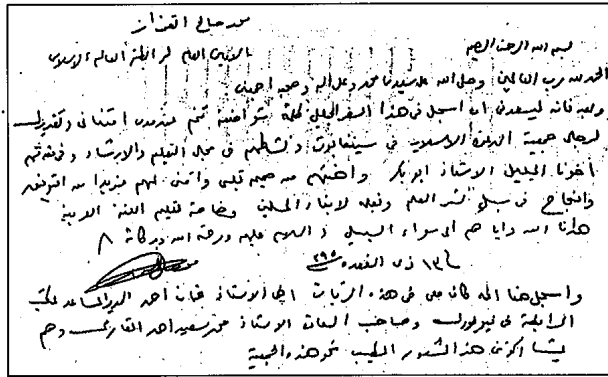 محمد صالح القزاز
الامين العام لرابطة العالم الاسلامي
بسم الله الرحمن الرحيم
الحمد لله رب العالمين وصلى الله على سيدنا محمد وعلى آله وصحبه اجمعين
وبعد فانه ليسعدني ان اسجل في هذا السفر الجليل كلمة متواضعة تنم عن مدى امتناني وتقديري
لرجال جمعية الدعوة الاسلامية في سينغافورة ونشاطهم في مجال التعليم والارشاد وفي مقدمتهم
اخونا الجليل الاستاذ ابو بكر واهنئهم من صميم قلبي واتمنى لهم مزيدا من التوفيق
والنجاح في سبيل نشر العلم ونفعه لابناء المسلمين وخاصة تعليم اللغة العربية
هدانا الله وايا هم الى سواء السبيل والسلام عليه ورحمة الله وبركاته
١٣ ذي القعدة ٣٩٥
واسجل هنا انه كان معي في هذه الزيارات اخي الاستاذ احمد المساعد لمكتب
الرابطة في نيويورك وصاحب السعادة الاستاذ محمد سعيد احمد وهم
هذا الشعور الطيب نحو هذه الجمعية